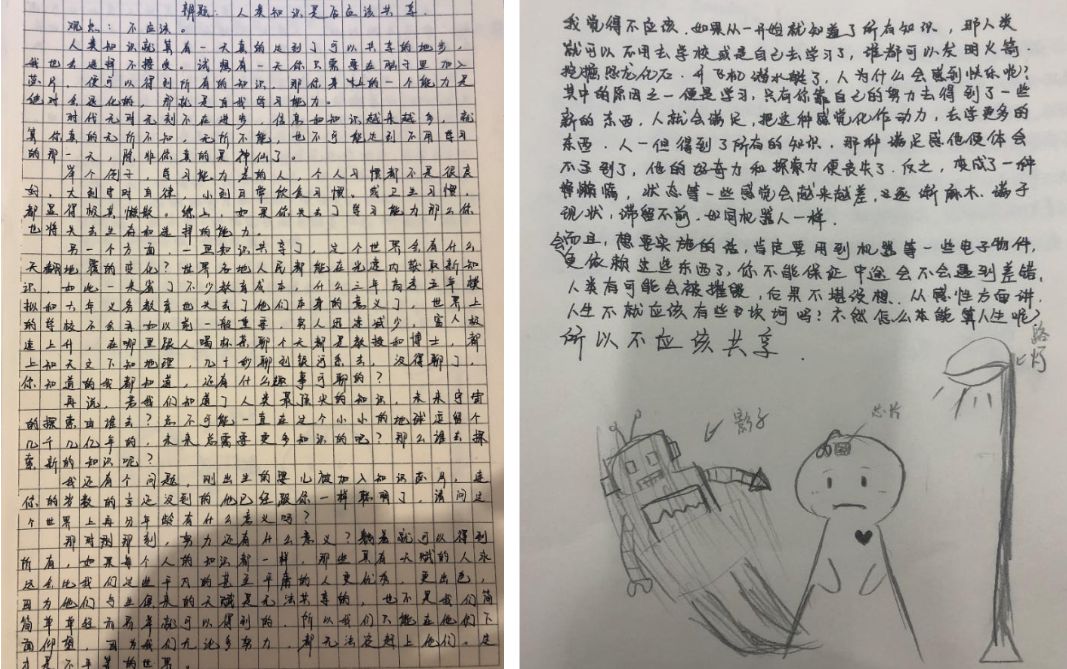 辩题：人类知识是否应该共享.
观点：不应该。
人类知识就算有一天真的达到了可以共享的地步,
我也选择不接受。试想有一天你只需要在脑子里加入
芯片，便可以得到所有的知识，那你身上的一个能力是
绝对会退化的，那就是自我学习能力。
时代无时无刻不在进步，信息和知识越来越多，就
算你真的无所不知，无所不能，也不可能达到不用学习
的那一天，除非你真的是神仙了。
举个例子，学习能力差的人，个人习惯都不是很良
好，大到守时自律，小到日常饮食习惯，或卫生习惯，
都显得极其懒散。综上，如果你失去了学习能力那么你
也将失去生存和选择的能力。
另一个方面，一旦知识共享了，这个世界会有什么
天翻地覆的变化？世界各地人民都能在光速内获取新知
识，如此一来省了不少教育成本，什么三年高考五年模
拟和六年义务教育也失去了他们本身的意义了，世界上
的学校不会再如以前一般重要，穷人迅速减少，富人极
速上升，在哪里跟人喝杯茶聊个天都是教授和博士，都
上知天文下知地理，几十秒聊到银河系去，没得聊了，
你知道的我都知道，还有什么趣事可聊的？
再说，若我们知道了人类最顶尖的知识，未来宇宙
的探索由谁去？总不可能一直在这个小小的地球逗留个
几千几亿年的，未来总需要更多知识的吧？那么谁去探
索新的知识呢？
我还有个问题，刚出生的婴儿被加入知识芯片，连
你的岁数的零头还没到的他已经跟你一样聪明了，请问这
个世界上再分年龄有什么意义吗？
那时那刻，努力还有什么意义？躺着就可以得到
所有，如果每个人的知识都一样，那些具有天赋的人永
远会比我们这些平凡的甚至平庸的人更优秀，更出色，
因为他们与生俱来的天赋是无法共享的，也不是我们简
简单单轻而易举就可以得到的，所以我们只能在他们下
面仰望，因为我们无论多努力，都无法家超上他们。这
才是不平等的世界。
我觉得不应该.如果从一开始就知道了所有知识，那人类
就可以不用去学校或是自己去学习了，谁都可以发明火箭.
挖掘恐龙化石.开飞机潜水艇了，人为什么会感到快乐呢？
其中的原因之一便是学习，只有你靠自己的努力去得到了一些
新的东西.人就会满足，把这种感觉化作动力，去学更多的
东西.人一但得到了所有的知识.那种满足感他便体会
不到了，他的好奇力和探索力便丧失了.反之，变成了一种
懒惰，状态等一些感觉会越来越差，逐渐麻木.满于
现状，滞留不前.如同机器人一样.
而且，想要实施的话，肯定要用到机器等一些电子物件，
会更依赖这些东西了，你不能保证中途会不会遇到差错，
人类有可能会被摧毁，后果不堪设想.从感性方面讲，
人生不就应该有些坎坷吗？不然怎么才能算人生呢？
所以不应该共享.
路灯
影子
芯片